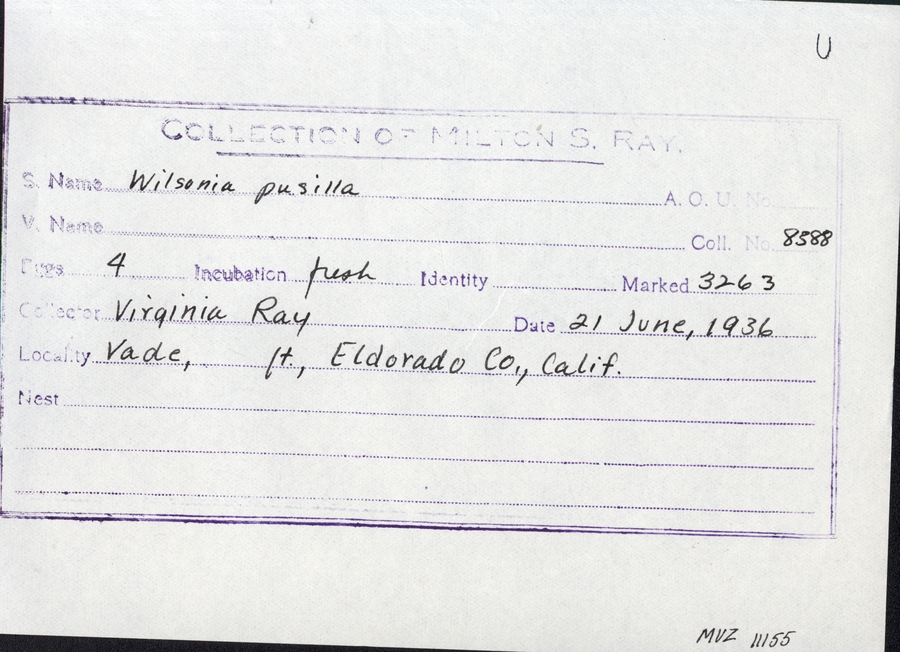 U
COLLECTION OF MILTON S. RAY.
S. Name Wilsonia pusilla A. O. U. No.
V. Name Coll. No. 8388
Eggs 4 Incubation fresh Identity Marked 3263
Collector Virginia Ray Date 21 June, 1936
Locality Vade, ft., Eldorado Co., Calif.
Nest
MVZ 11155